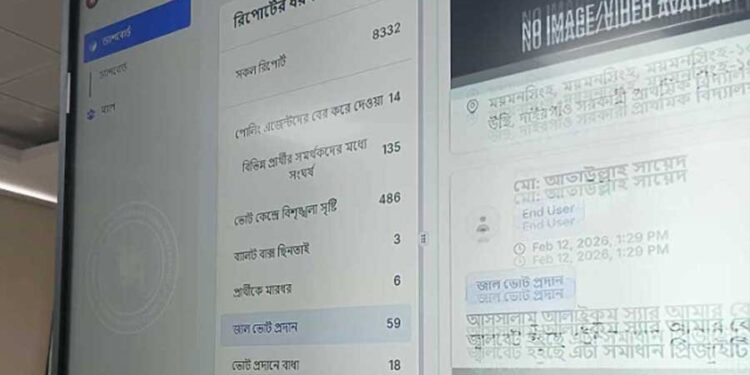 ড্যাশবোর্ড
ড্যাশবোর্ড
ম্যাপ
রিপোর্টের ধর
সকল রিপোর্ট 8332
পোলিং এজেন্টদের বের করে দেওয়া 14
বিভিন্ন প্রার্থীর সমর্থকদের মধ্যে 135
সংঘর্ষ
ভোট কেন্দ্রে বিশৃঙ্খলা সৃষ্টি 486
ব্যালট বাক্স ছিনতাই 3
প্রার্থীকে মারধর 6
জাল ভোট প্রদান 59
ভোট প্রদানে বাধা 18
NO IMAGE/VIDEO AVAILA
ময়মনসিংহ, ময়মনসিংহ-১
সরকারী প্রাথমিক
মো: আতাউল্লাহ সায়েদ
End User
Feb 12, 2026, 1:29 PM
জাল ভোট প্রদান
আসসালামু আলাইকুম স্যার আমার
এটা সমাধান